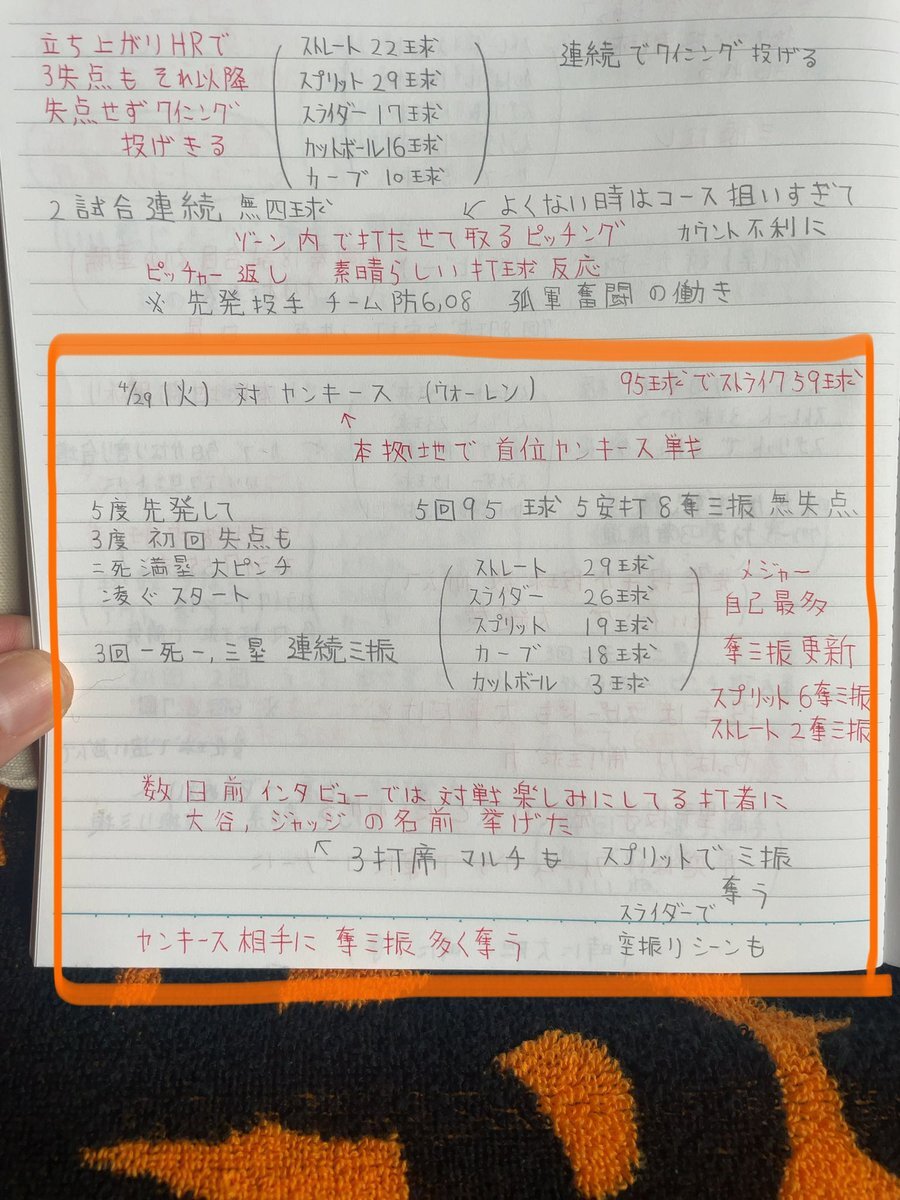 立ち上がりHRで
3失点も それ以降
失点せず7イニング
投げきる
ストレート 22球
スプリット 29球
スライダー 17球
カットボール16球
カーブ 10球
連続で7イニング投げる
2試合連続 無四球
↙ よくない時はコース狙いすぎて
カウント不利に
ゾーン内で打たせて取るピッチング
ピッチャー返し 素晴らしい打球反応
※ 先発投手 チーム防6,08 孤軍奮闘の働き
4/29(火) 対ヤンキース (ウォーレン)
95球でストライク59球
↑
本拠地で首位ヤンキース戦
5度先発して
3度 初回失点も
二死満塁 大ピンチ
凌ぐスタート
3回一死一,三塁 連続三振
5回95球 5安打8奪三振 無失点
ストレート 29球
スライダー 26球
スプリット 19球
カーブ 18球
カットボール 3球
メジャー
自己最多
奪三振更新
スプリット6奪三振
ストレート2奪三振
数日前インタビューでは対戦楽しみにしてる打者に
大谷,ジャッジの名前 挙げた
↖ 3打席 マルチも スプリットで三振
奪う
スライダーで
空振りシーンも
ヤンキース相手に奪三振多く奪う